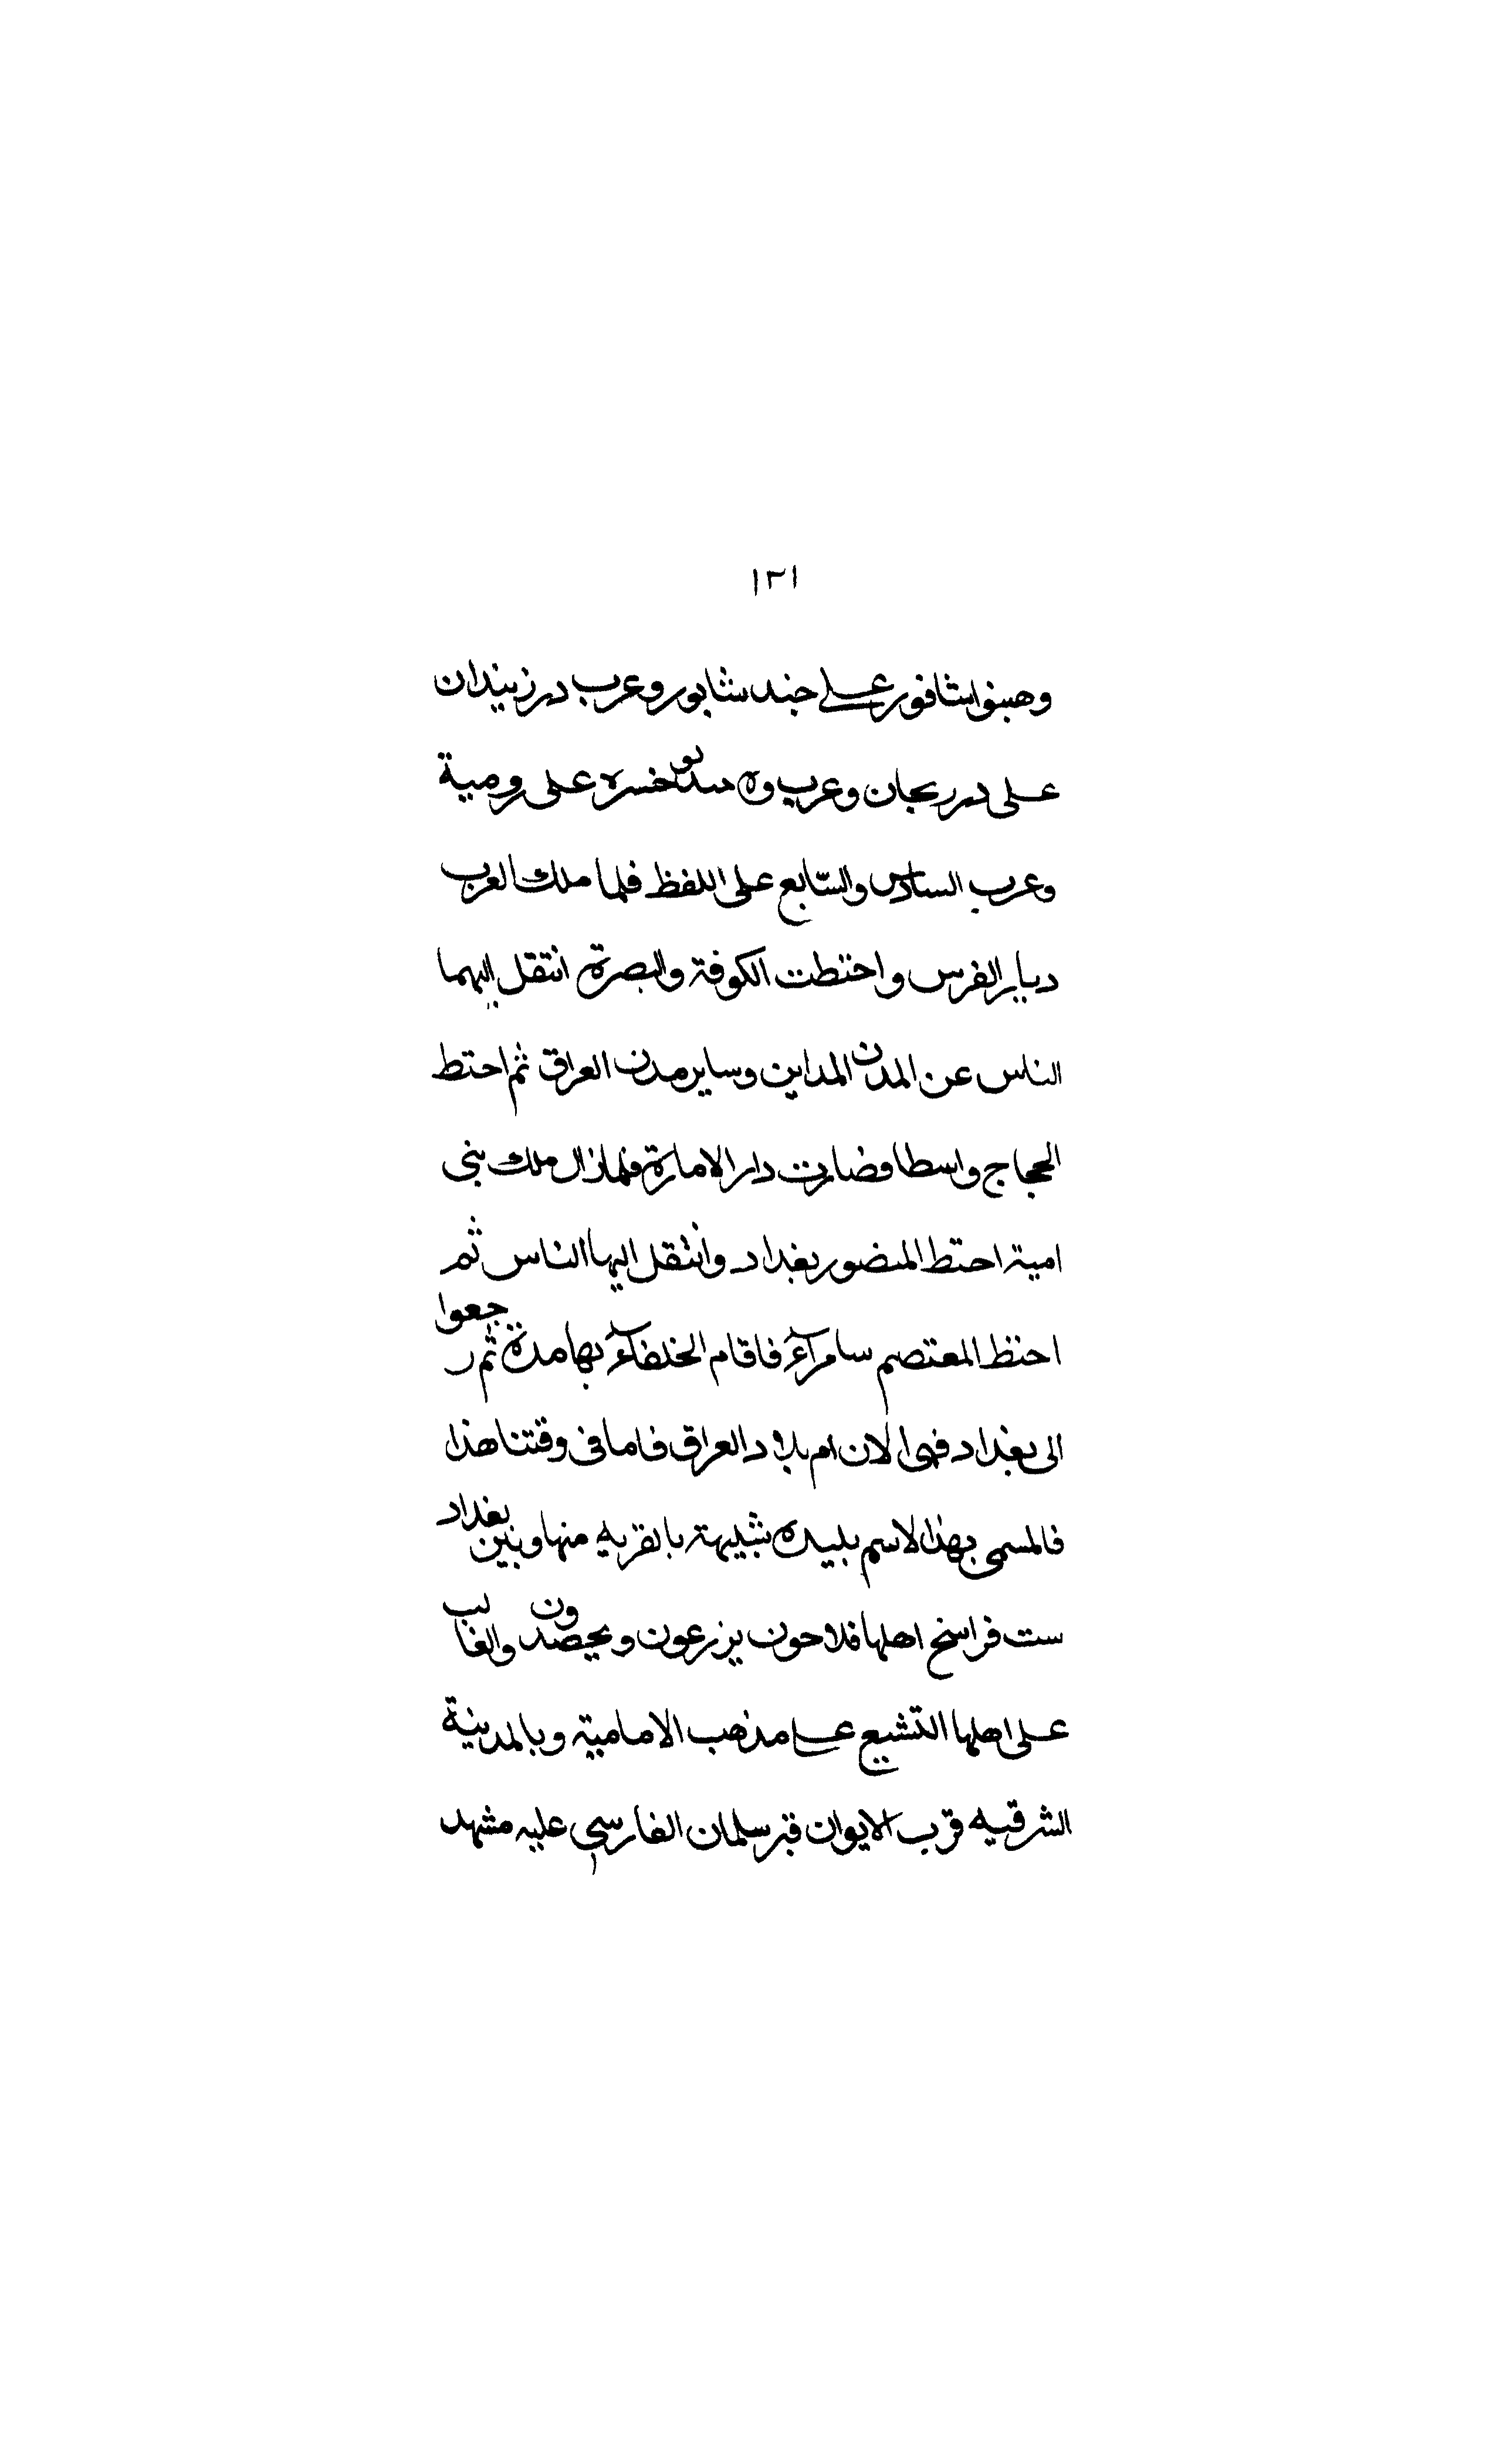 ١٣١
وهبنو اشافور على جند شابور وعرب درزبيندان
على درريجان وعرب وه خسره على رومية
وعرب السادس والسّابع على اللفظ فلما ملك العرب
ديار الفرس واختطت الكوفة والبصرة انتقل اليهما
الناس عن المدن المداين وساير مدن العراق ثم احتط
الحجاج واسطا فضارت دار الامارة فلما زال ملك بنى
امية احتط المنضور بغداد وانتقل اليها الناس ثم
احنظ المعتصم سامرآء فاقام الخلفآء بها مدة ثم رجعوا
الى بغداد فهى الان ام بلاد العراق فاما فى وقتنا هذا
فالمسمى بهذا الاسم بليدة شبيهة بالقريه منها وبين بغداد
ست فراسخ اهلها فلاحون يزرعون ويحصدون والغالب
على اهلها التشيع على مذهب الامامية وبالمدينة
الشرقيه قرب الايوان قبر سلمان الفارسى عليه مشهد